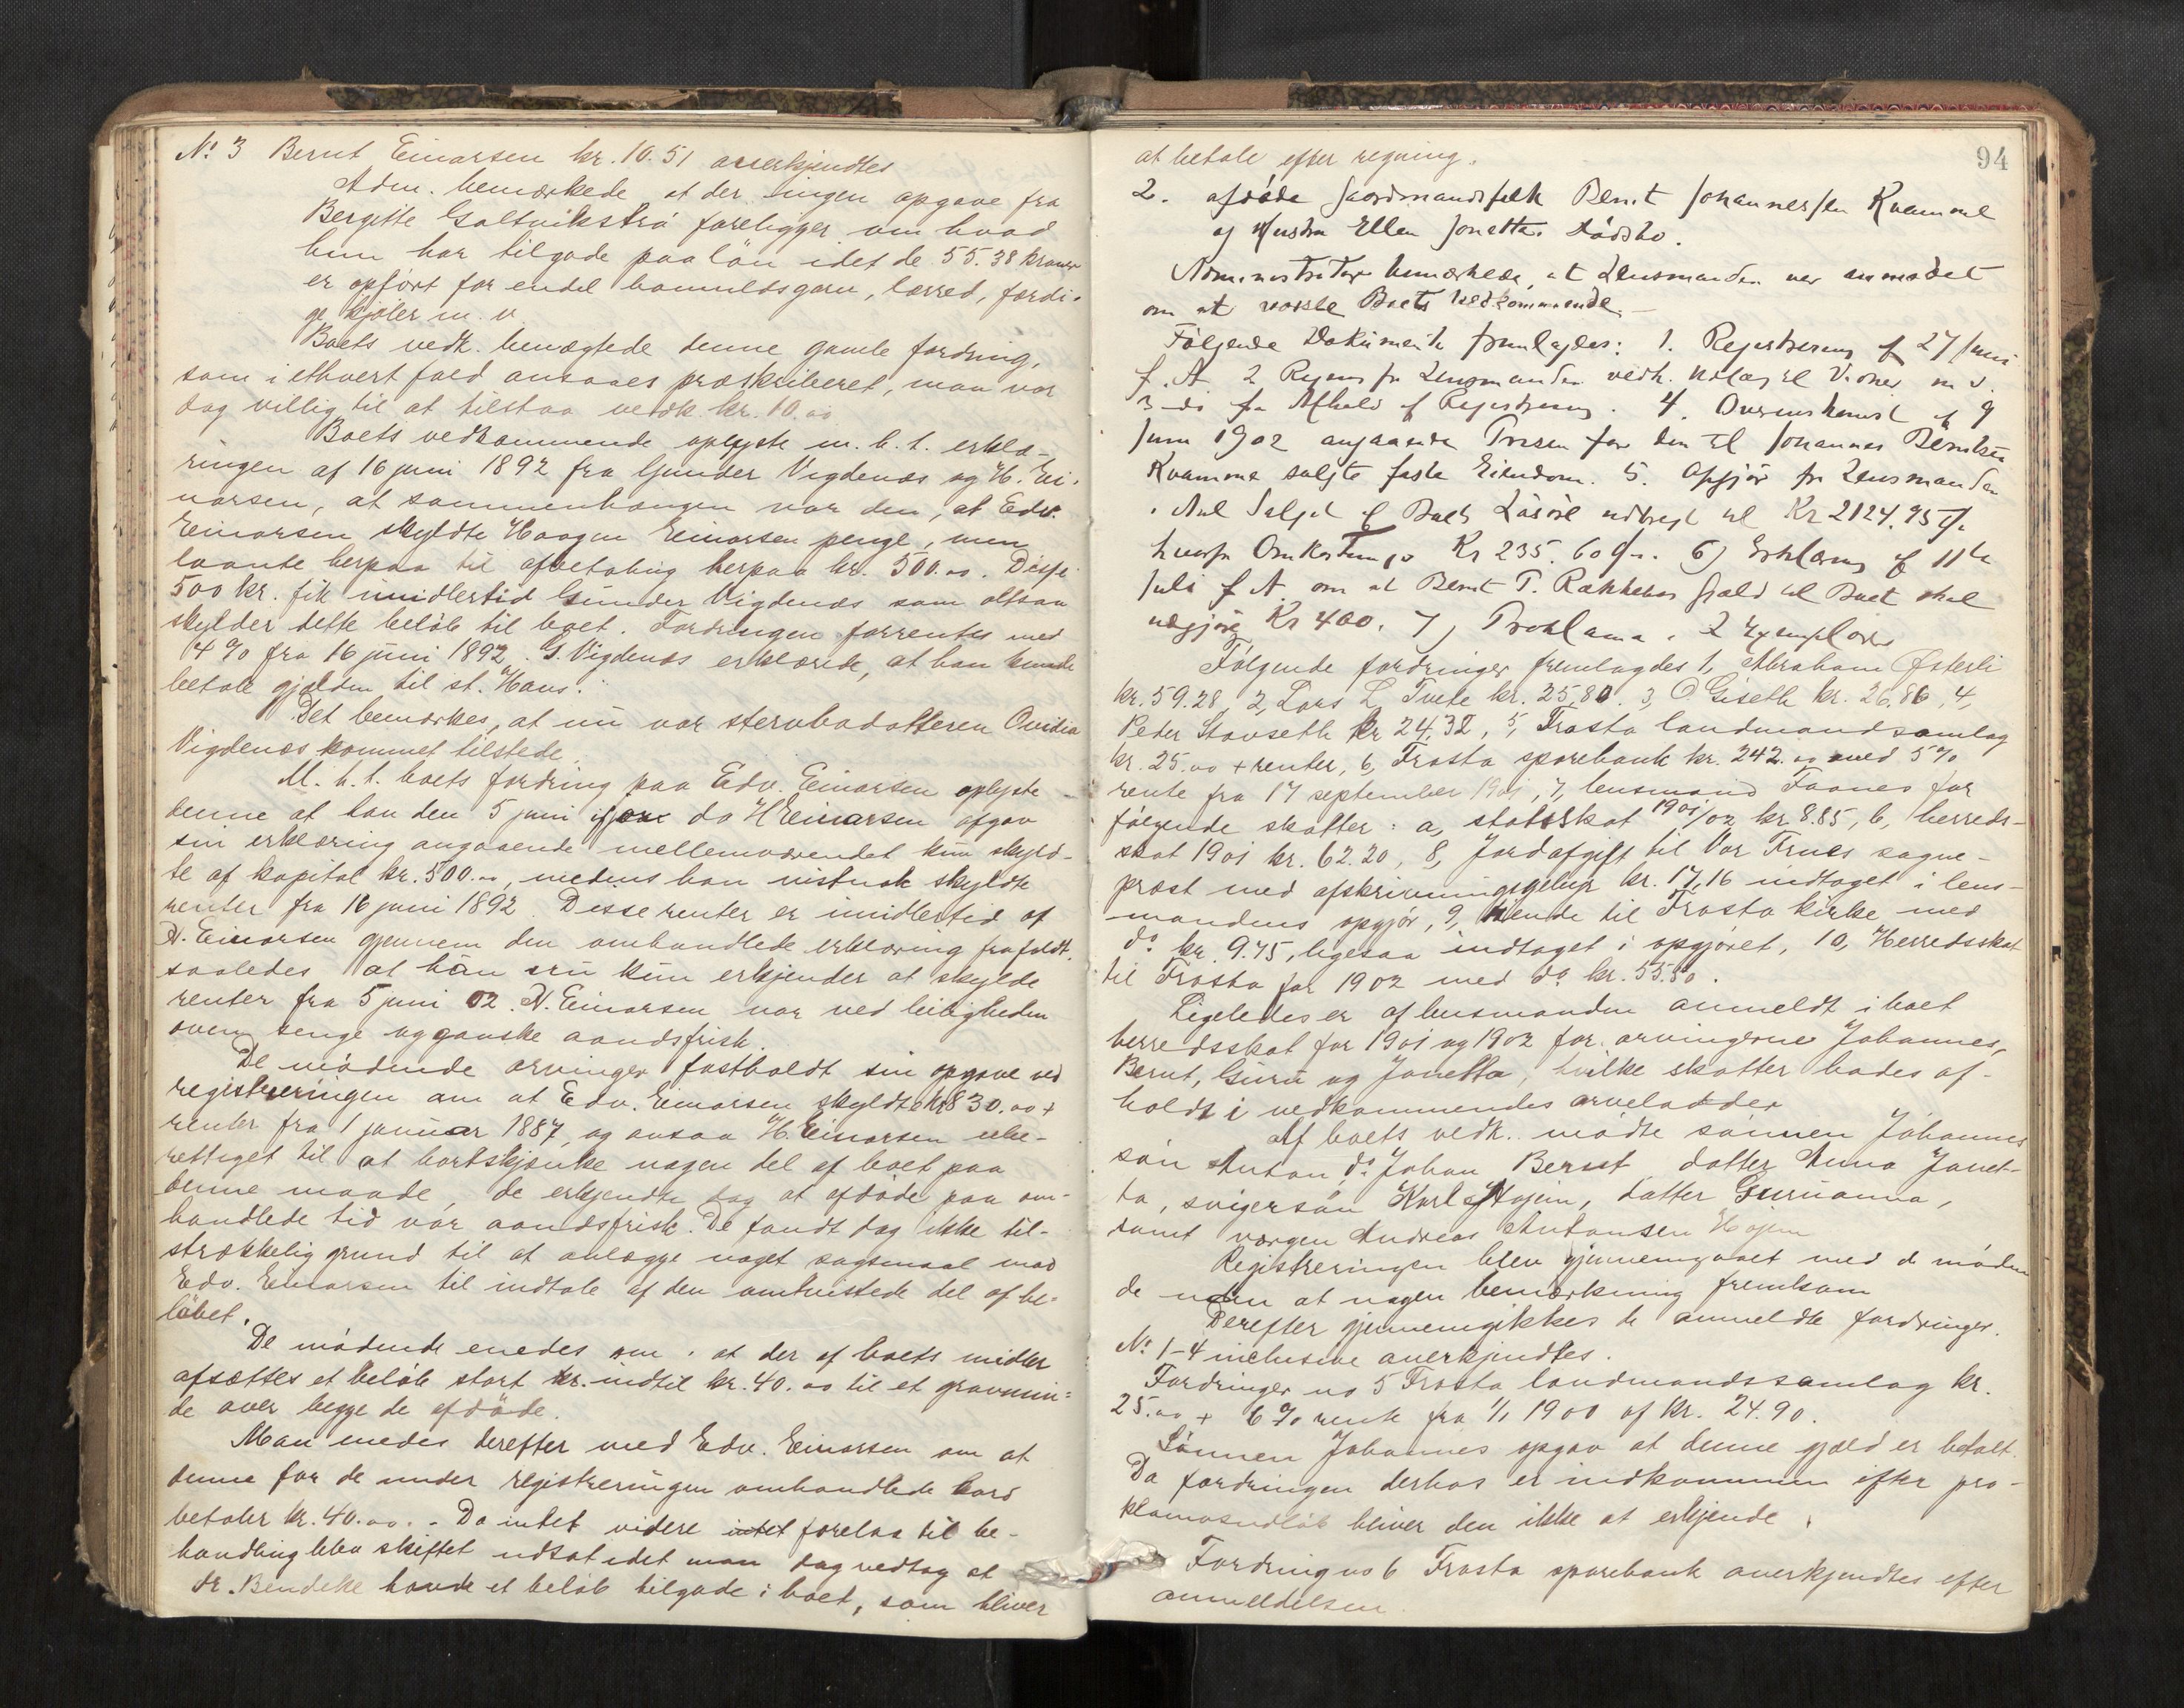 No 3 Bernt Einarsen kr. 10.51 anerkjendtes
Adm. bemærkede at der ingen opgave fra
Bergitte Galtvikstrø foreligger om hvad
hun har tilgode paa løn idet de 55.38 kroner
er opført for endel bomuldsgarn, lærred, færdi-
ge kjoler m. v.
Boets vedk. benægtede denne gamle fordring,
som i ethvert fald ansaaes præskriberet, man var
dog villig til at tilstaa vedk. kr. 10.00
Boets vedkommende oplyste m. h. t. erklæ-
ringen af 16 juni 1892 fra Gunder Vigdenæs og H. Ei-
narsen, at sammenhængen var den, at Edv.
Einarsen skyldte Haagen Einarsen penge, men
laante herpaa til afbetaling herpaa kr. 500.00. Disse
500 kr. fik imidlertid Gunder Vigdenæs som altsaa
skylder dette beløb til boet. Fordringen forrentes med
4 % fra 16 juni 1892. G. Vigdenæs erklærede, at han kunde
betale gjælden til st. Hans.
Det bemærkes, at nu var stervbodatteren Ovidia
Vigdenæs kommet tilstede.
M. h. t. boets fordring paa Edv. Einarsen oplyste
denne at han den 5 juni ifjor da H Einarsen afgav
sin erklæring angaaende mellemværendet kun skyld-
te af kapital kr. 500.00, medens han vistnok skyldte
renter fra 16 juni 1892. Disse renter er imidlertid af
H. Einarsen gjennem den omhandlede erklæring frafaldt,
saaledes at han nu kun erkjender at skylde
renter fra 5 juni 02. H. Einarsen var ved leiligheden
oven senge og ganske aandsfrisk.
De mødende arvinger fastholdt sin opgave ved
registreringen om at Edv. Einarsen skyldte kr 830.00 +
renter fra 1 januar 1887, og ansaa H. Einarsen ube-
rettiget til at bortskjænke nogen del af boet paa
denne maade, de erkjendte dog at afdøde paa om-
handlede tid var aandsfrisk. De fandt dog ikke til-
strækkelig grund til at anlægge noget søgsmaal mod
Edv. Einarsen til indtale af den omtvistede del af be-
løbet.
De mødende enedes om at der af boets midler
afsættes et beløb stort kr. indtil kr. 40.00 til et gravmin-
de over begge de afdøde.
Man enedes derefter med Edv. Einarsen om at
denne for de under registreringen omhandlede bord
betaler kr. 40.00. - Da intet videre intet forelaa til be-
handling blev skiftet udsat idet man dog vedtog at
dr. Bendeke havde et beløb tilgode i boet, som bliver
94
at betale efter regning.
2. afdøde Gaardmandsfolk Bernt Johannessen Kvamme
og Hustru Ellen Jonettas Dødsbo.
Administrator bemærkede, at Lensmanden var anmodet
om at varsle Boets Vedkommende. -
Følgende Dokumenter fremlagdes: 1. Registrering af 27 Juni
f. A. 2 Regning fra Lensmanden vedk. m v.
3 do for Afhold af Registrering. 4. Overenskomst af 9
Juni 1902 angaaende Prisen for den til Johannes Berntsen
Kvamme solgte faste Eiendom. 5. Opgjør fra Lensmanden
Salget af Boets Løsøre udbragt til Kr 2124.95
hvorfra Omkostninger Kr 235.60. 6) Erklæring af 11te
Juli f A. om at Bernt T. Gjæld til Boet skal
udgjøre Kr 400. 7) Proklama i 2 Exemplarer
Følgende fordringer fremlagdes 1, Abraham Østerli
kr. 59.28, 2, Lars L Tvete kr. 25,80. 3, O Giseth kr. 26.86, 4,
Peder Stavseth kr 24.32, 5, Frosta landmandssamlag
kr. 25.00 + renter, 6, Frosta sparebank kr. 242.00 med 5%
rente fra 17 september 1901, 7, lensmand Faanes for
følgende skatter: a, statsskat 1901/02 kr. 8.85, b, herreds-
skat 1901 kr. 62.20, 8, Jordafgift til Vor Frues sogne-
præst med afskrivningsgebyr kr. 17,16 indtaget i lens-
mandens opgjør, 9, tiende til Frosta kirke med
do kr. 9.75, ligesaa indtaget i opgjøret, 10, Herredsskat
til Frosta for 1902 med do kr. 55.50.
Ligeledes er af lensmanden anmeldt i boet
herredsskat for 1901 og 1902 for arvingerne Johannes,
Bernt, Guru og Jonetta, hvilke skatter bedes af-
holdt i vedkommendes arvelodder
Af boets vedk. mødte sønnen Johannes
søn Anton, do Johan Bernt datter Anna Jonet-
ta, svigersøn Karl Hojem, datter Guruanna,
samt værgen Andreas Antonsen Hojem
Registreringen blev gjennemgaaet med de møden
de uden at nogen bemærkning fremkom
Derefter gjennemgikkes de anmeldte fordringer.
No 1-4 inclusive anerkjendtes.
Fordringer no 5 Frosta landmandssamlag kr.
25.00 + 6 % rente fra 1/1 1900 af kr. 24.90.
Sønnen Johannes opgav at denne gjæld er betalt.
Da fordringen derhos er indkommen efter pro-
klamaudløb bliver den ikke at erkjende.
Fordring no 6 Frosta sparebank anerkjendtes efter
anmeldelsen.